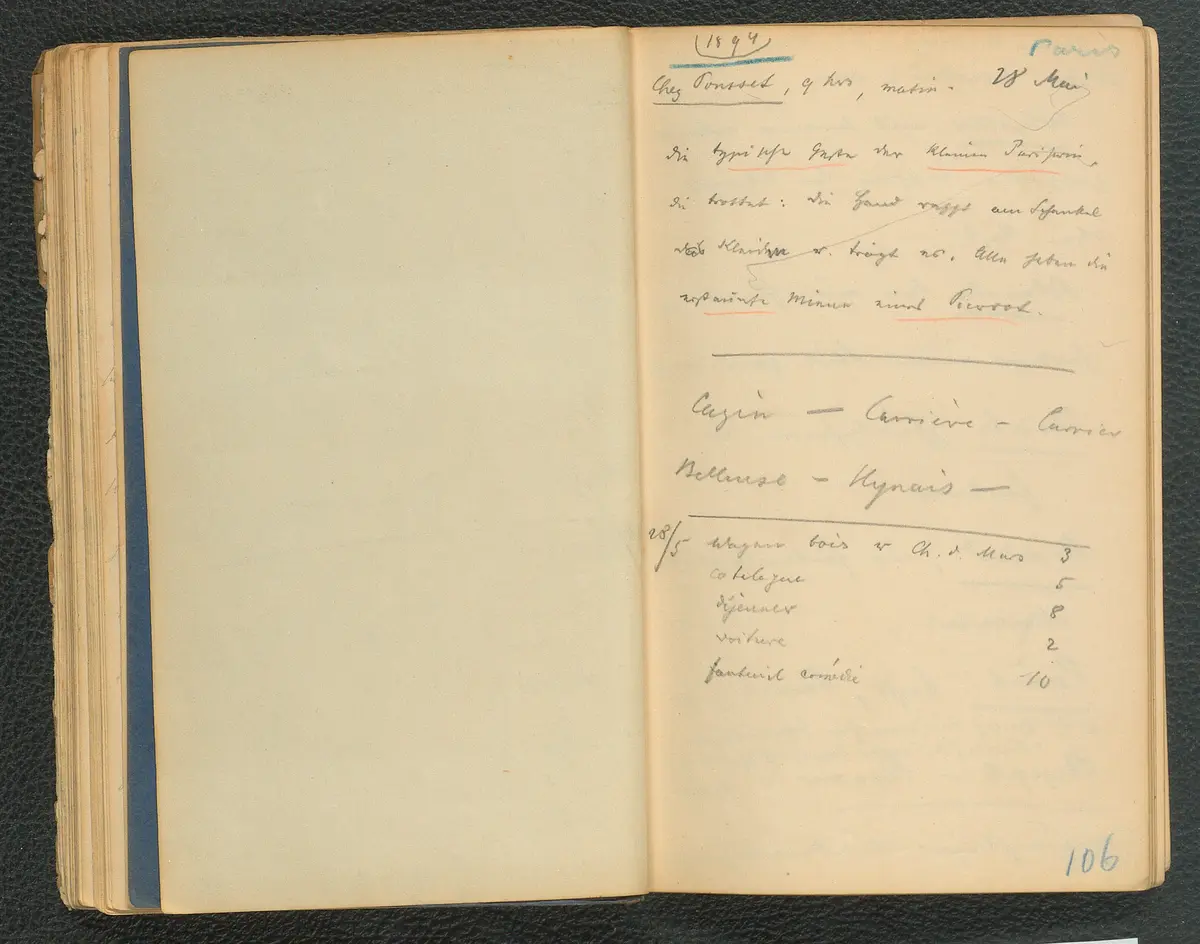 1894
Paris
Chez Pousset, 9 hrs, matin. 28 Mai
die typische Geste der kleinen Pariserin,
die trottet: die Hand rafft am Schenkel
das Kleidchen u. trägt es. Alle haben die
erstaunte Miene eines Pierrot.
Cazin – Carrière – Carrier
Belleuse – Hynais –
28/5 Wagen bois u Ch. d. Mars 3
catalogue 5
déjeuner 8
voiture 2
fauteuil comédie 10
106